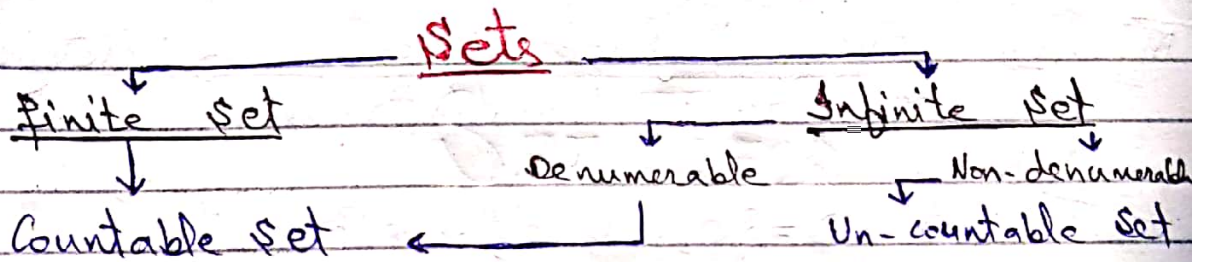 Sets
finite set Infinite set
Denumerable Non-denumerable
Countable set Un-countable set